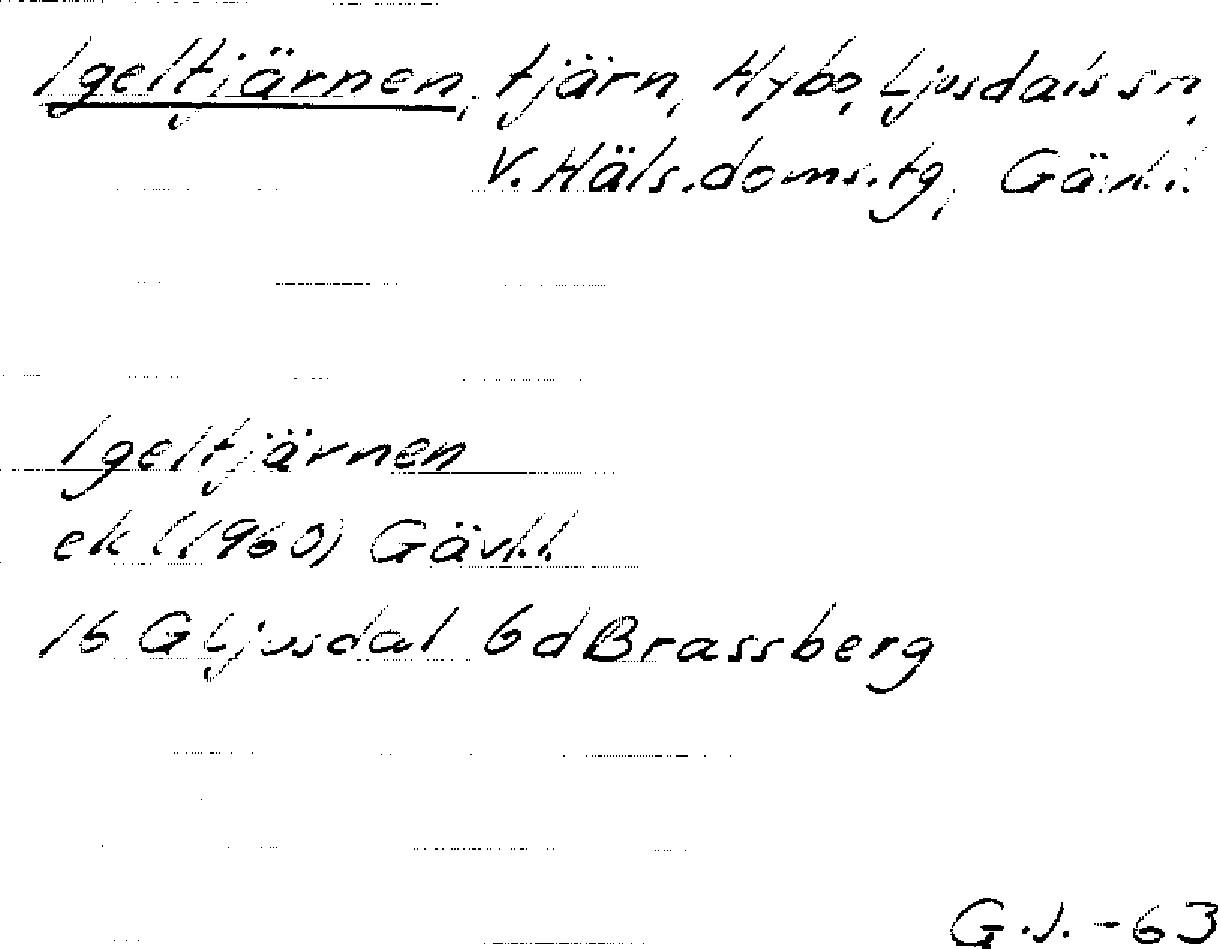 Igeltjärnen, tjärn, Hybo, Ljusdals sn,
V. Häls. doms. tg, Gävl.l.
Igeltjärnen
ek (1960) Gävl.l.
16 G Ljusdal 6d Brassberg
G.J. -63